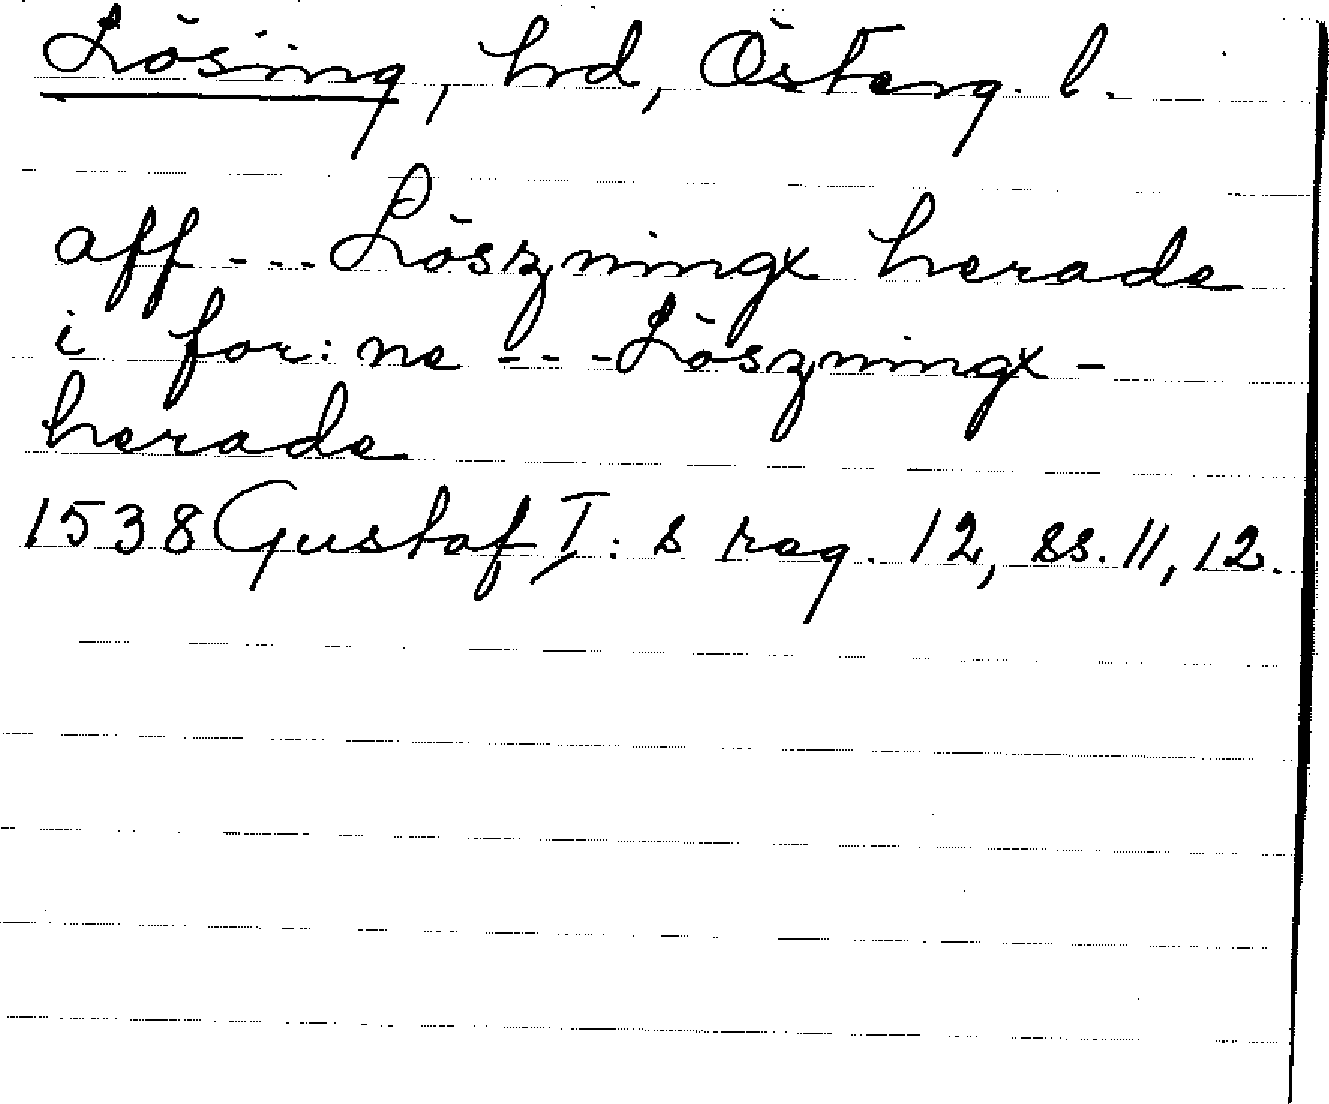 Lösing, hd, Österg. l.
aff --- Löszningx herade
i for:ne --- Löszningx-
herade
1538 Gustaf I:s reg. 12, ss. 11, 12.